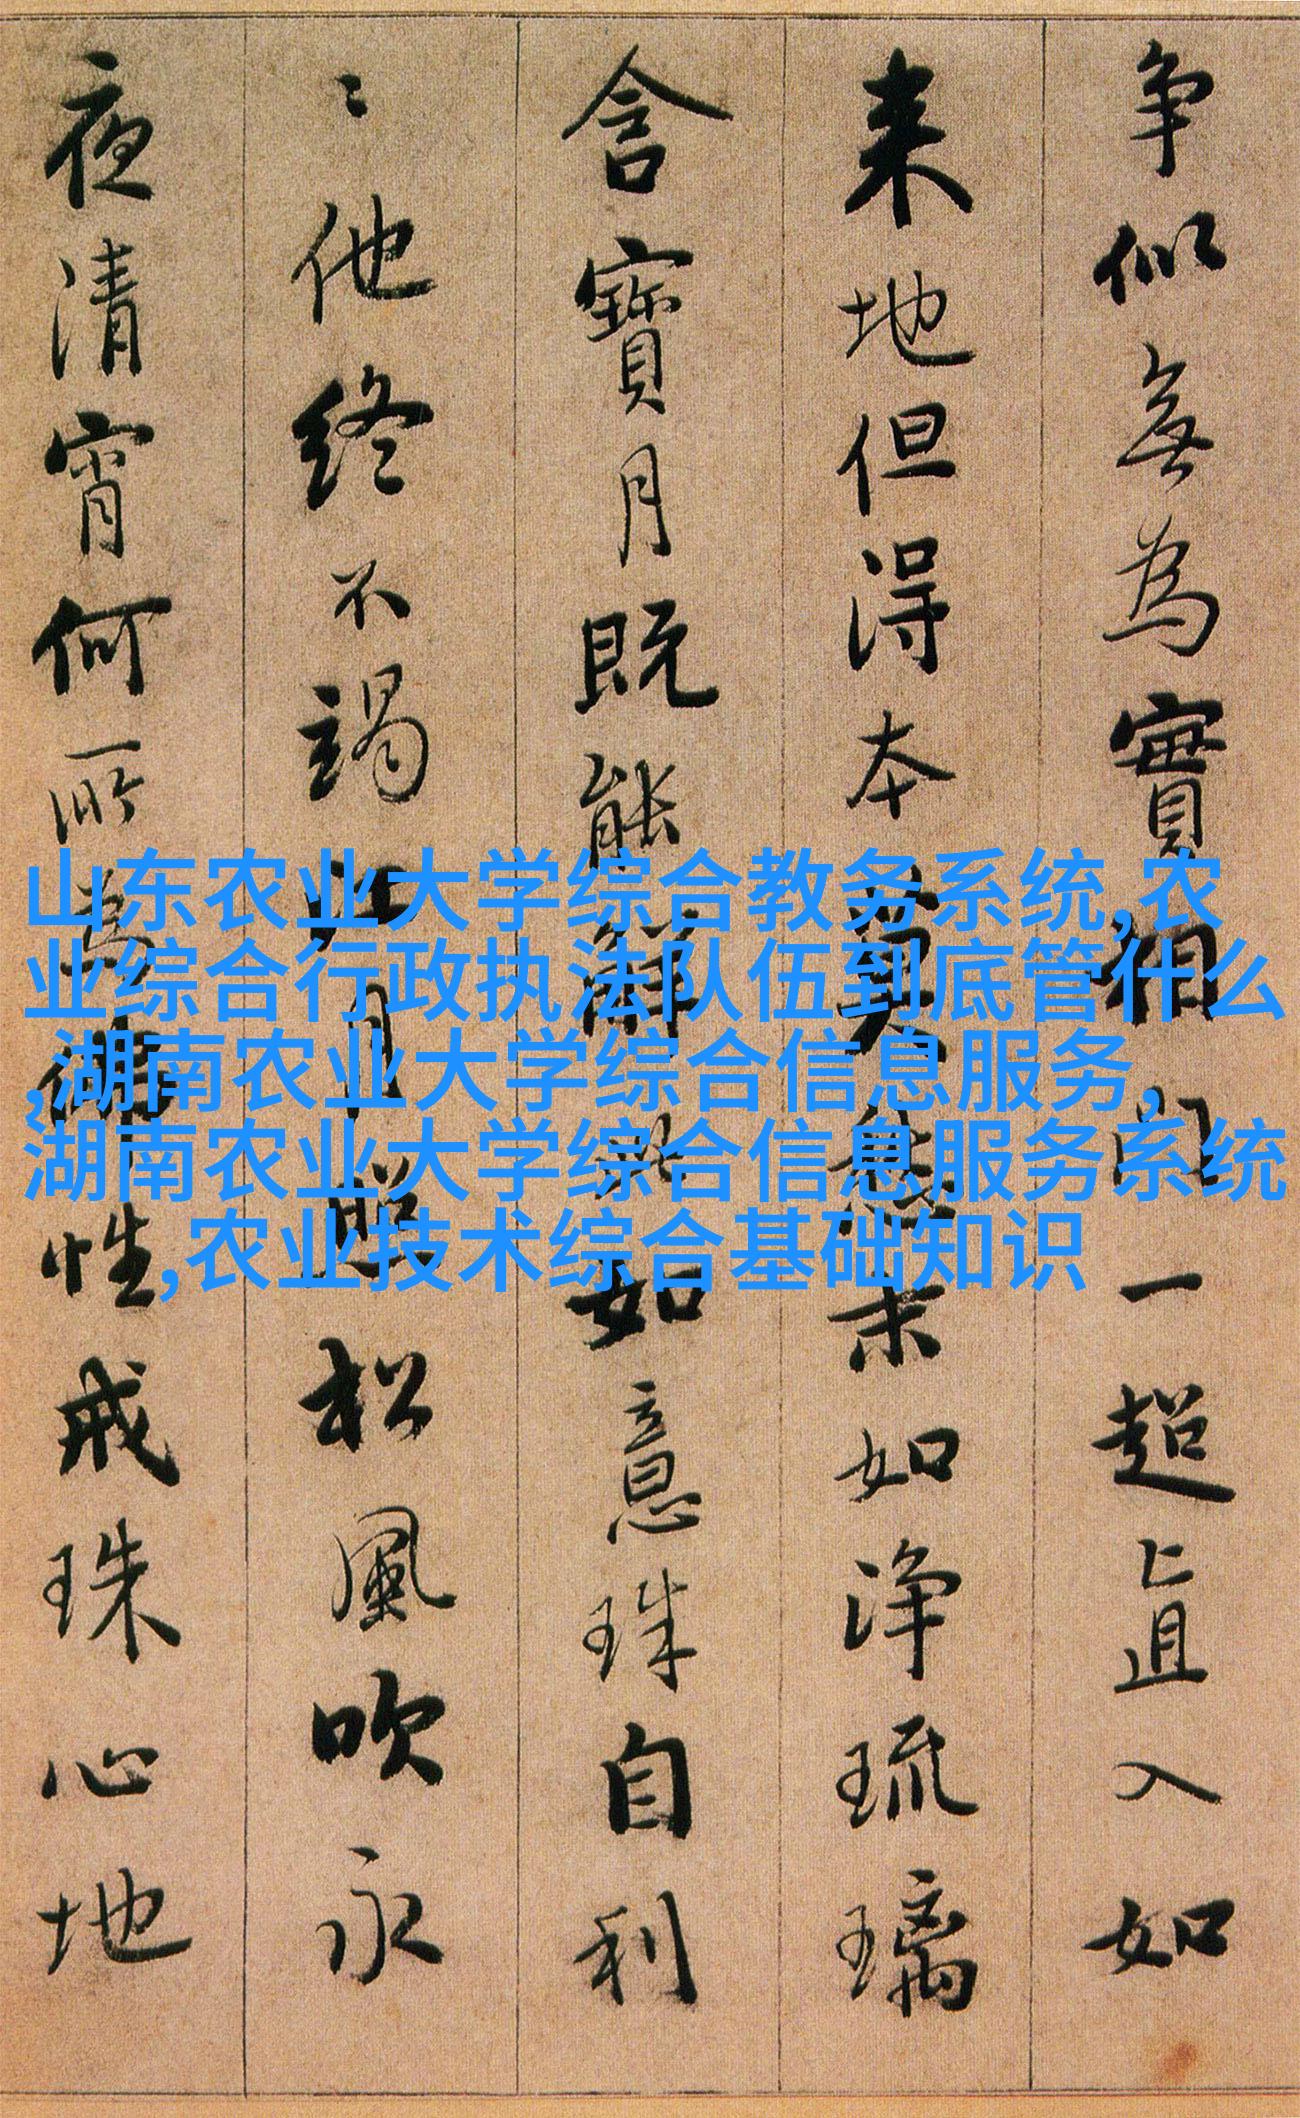 争似無為實相门一超直入如
来地但得本莫愁末如淨琉璃
含寶月既能解此如意珠自利
〻他終不竭江月照松風吹永
夜清宵何所為佛性戒珠心地
山东农业大学综合教务系统,农
业综合行政执法队伍到底管什么
,湖南农业大学综合信息服务,
湖南农业大学综合信息服务系统
,农业技术综合基础知识